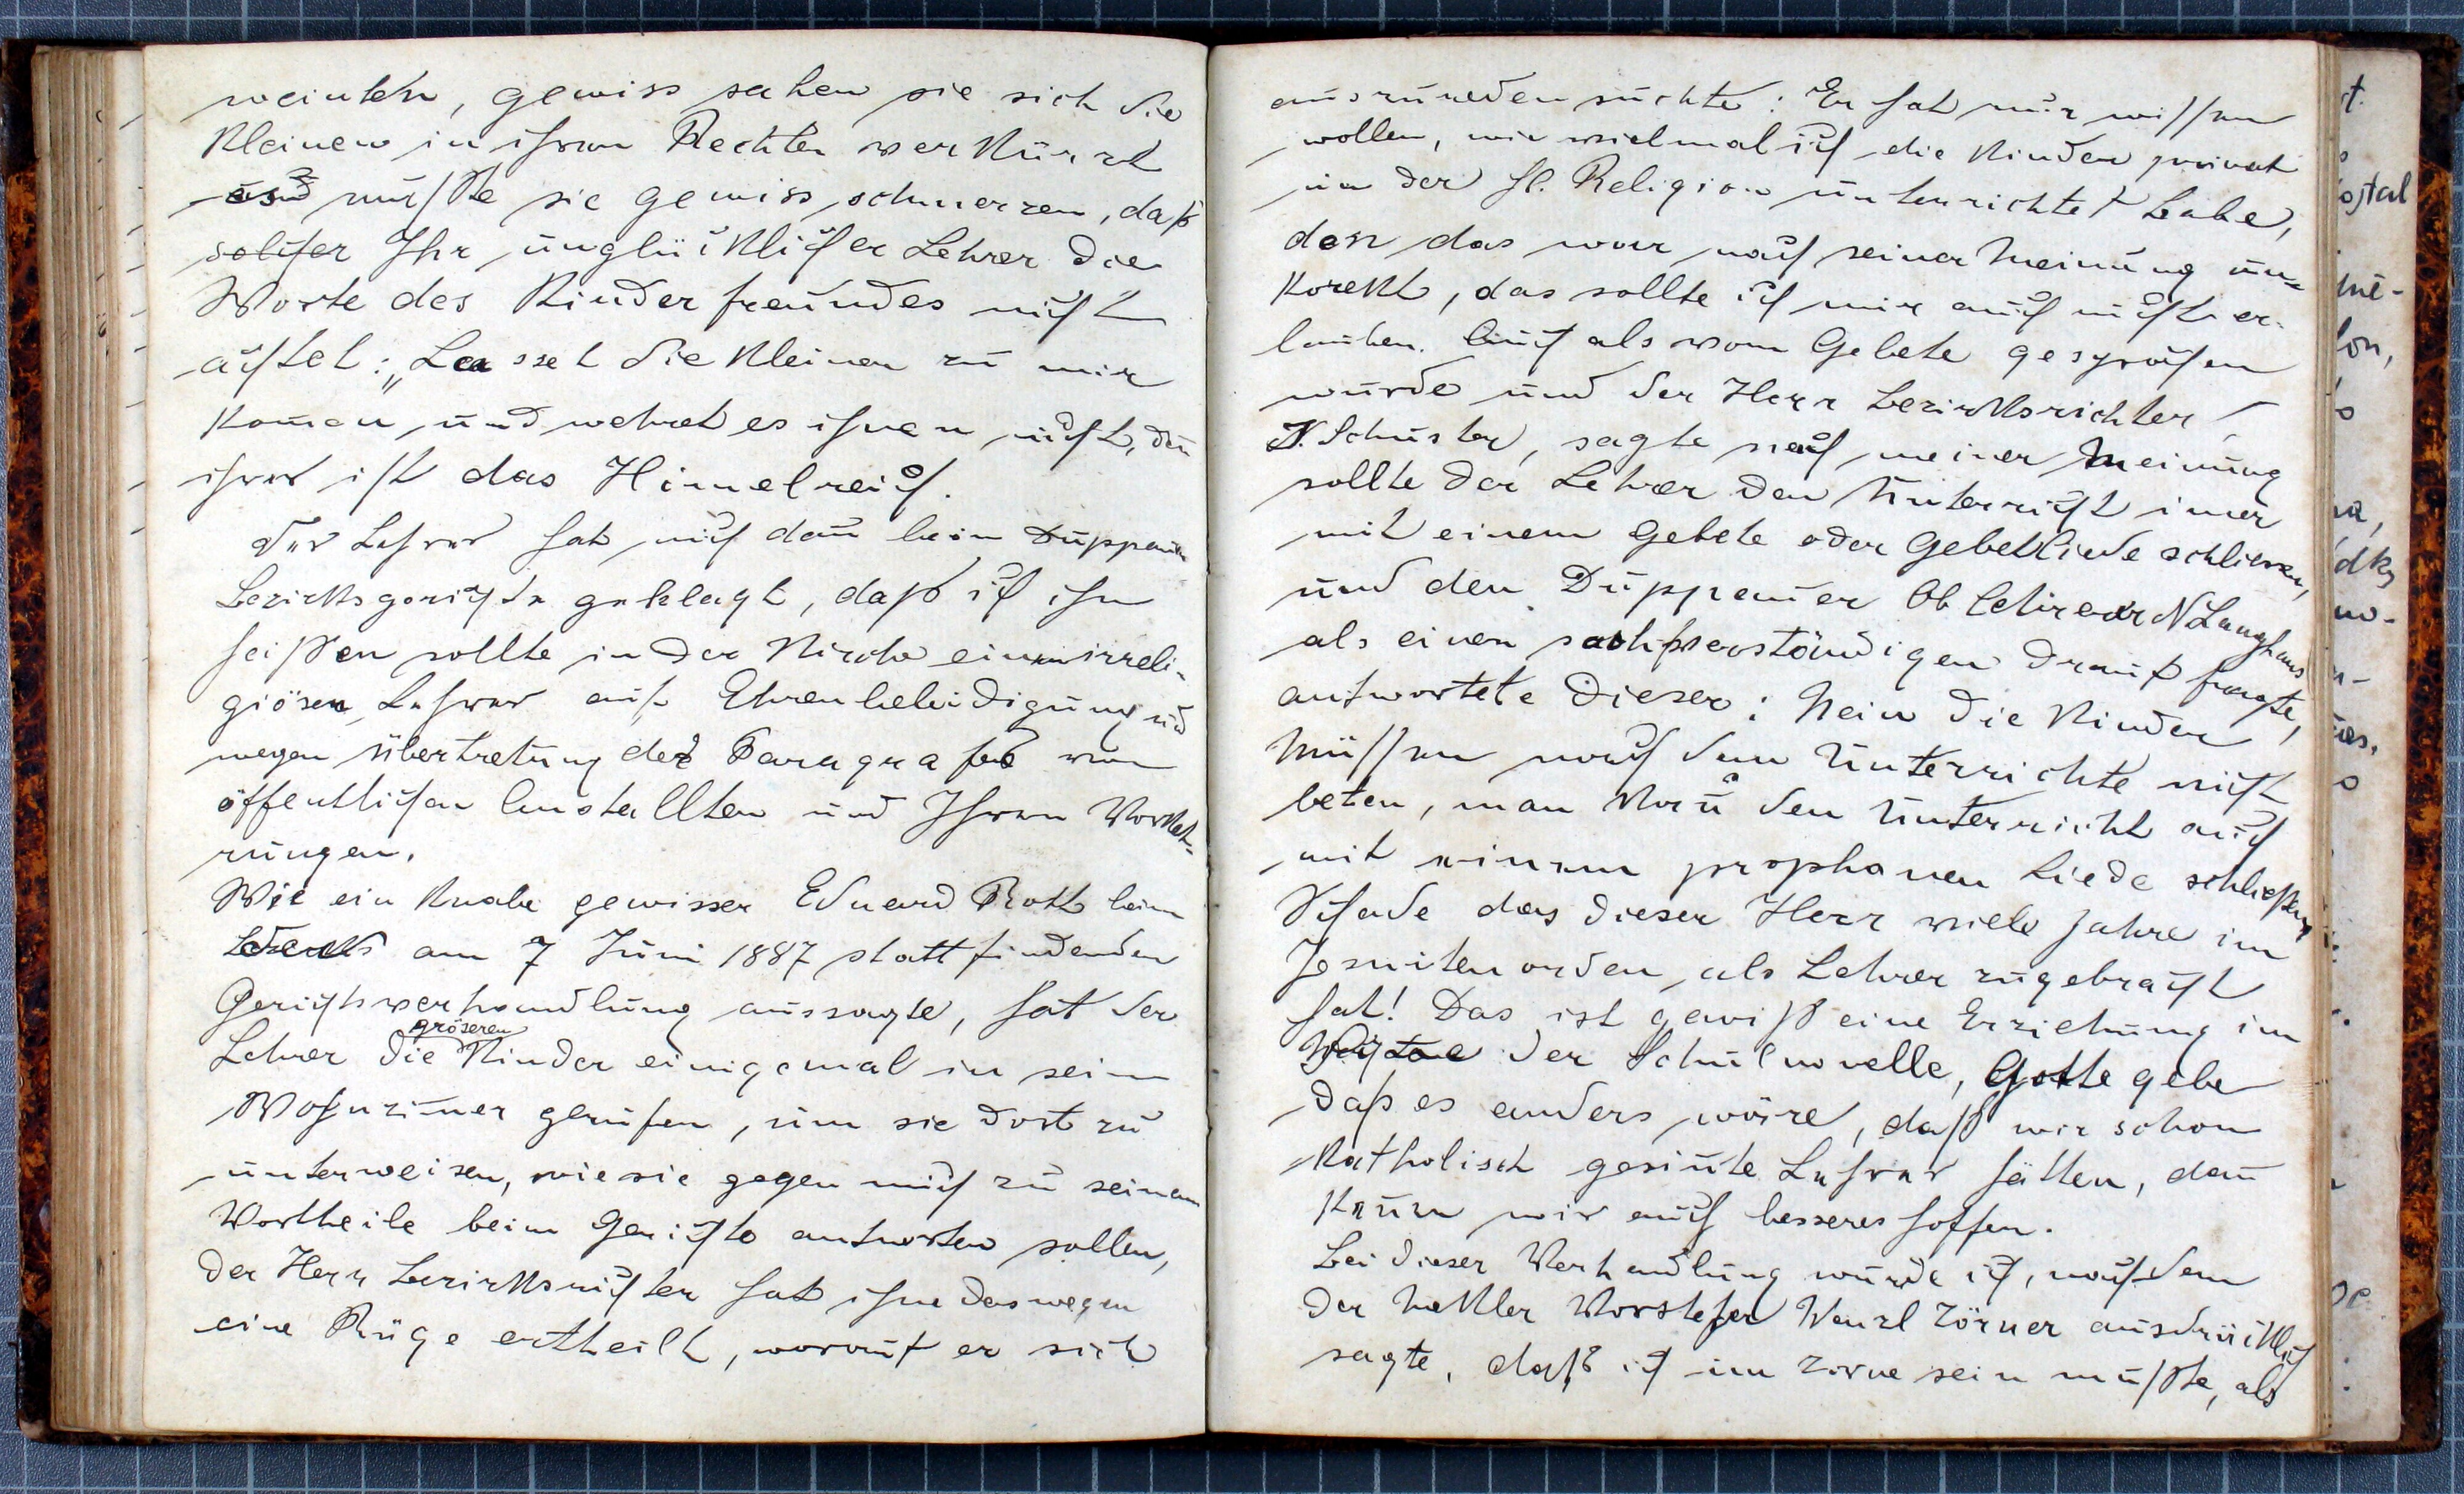 weinten, gewiss sahen sie sich die
Kleinen in ihren Rechten verkürzt
und mußte sie gewiss schmerzen, daß
solcher Ihr unglücklicher Lehrer die
Worte des Kinderfreundes nicht
achtet: „Lasset die Kleinen zu mir
kom̄en und wehret es ihnen nicht, den̄
ihrer ist das Him̄elreich.
Der Lehrer hat mich dan̄ beim Duppauer
Bezirksgerichte geklagt, daß ich ihn
heißen sollte in der Kirche einen irreli-
giösen Lehrer auf Ehrenbeleidigung und
wegen Übertretung des Paragrafes von
öffentlichen Anstallten und Ihren Vorkeh-
rungen.
Wie ein Knabe gewisser Eduard Roth beim
am 7 Juni 1887 stattfindenden
Gerichtsverhandlung aussagte, hat der
gröseren
Lehrer die Kinder einigemal in sein
Wohnzim̄er gerufen, um sie dort zu
unterweisen, wie sie gegen mich zu seinem
Vortheile beim Gerichte antworten sollen,
der Herr Bezirksrichter hat ihm deswegen
eine Rüge ertheilt, worauf er sich
auszureden suchte: Er hat nur wissen
wollen, wie vielmal ich die Kinder privat
in der hl. Religion unterrichtet habe,
den das war nach seiner Meinung un-
korekt, das sollte ich mir auch nicht er-
lauben. Auch als vom Gebete gesprochen
wurde und der Herr Bezirksrichter
N. Schuster, sagte nach meiner Meinung
sollte der Lehrer den Unterricht im̄er
mit einem Gebete oder Gebetliede schliessen,
und den Duppauer Oblehrer N Langhans
als einen sachverständigen drauf fragte,
antwortete dieser: Nein die Kinder
müssen nach dem Unterrichte nicht
beten, man kan̄ den Unterricht auch
mit einem prophanen Liede schließen,
Schade das dieser Herr viele Jahre im
Jesuitenorden, als Lehrer zugebracht
hat! Das ist gewiß eine Erziehung im
der Schulnovelle, Gotte gebe
daß es anders wäre, daß wir schon
katholisch gesin̄te Lehrer hätten, dan̄
kön̄en wir auch besseres hoffen.
Bei dieser Verhandlung wurde ich, nachdem
der Vorsteher Wenzl Zörner ausdrücklich
sagte, daß ich im Zorne sein mußte, als